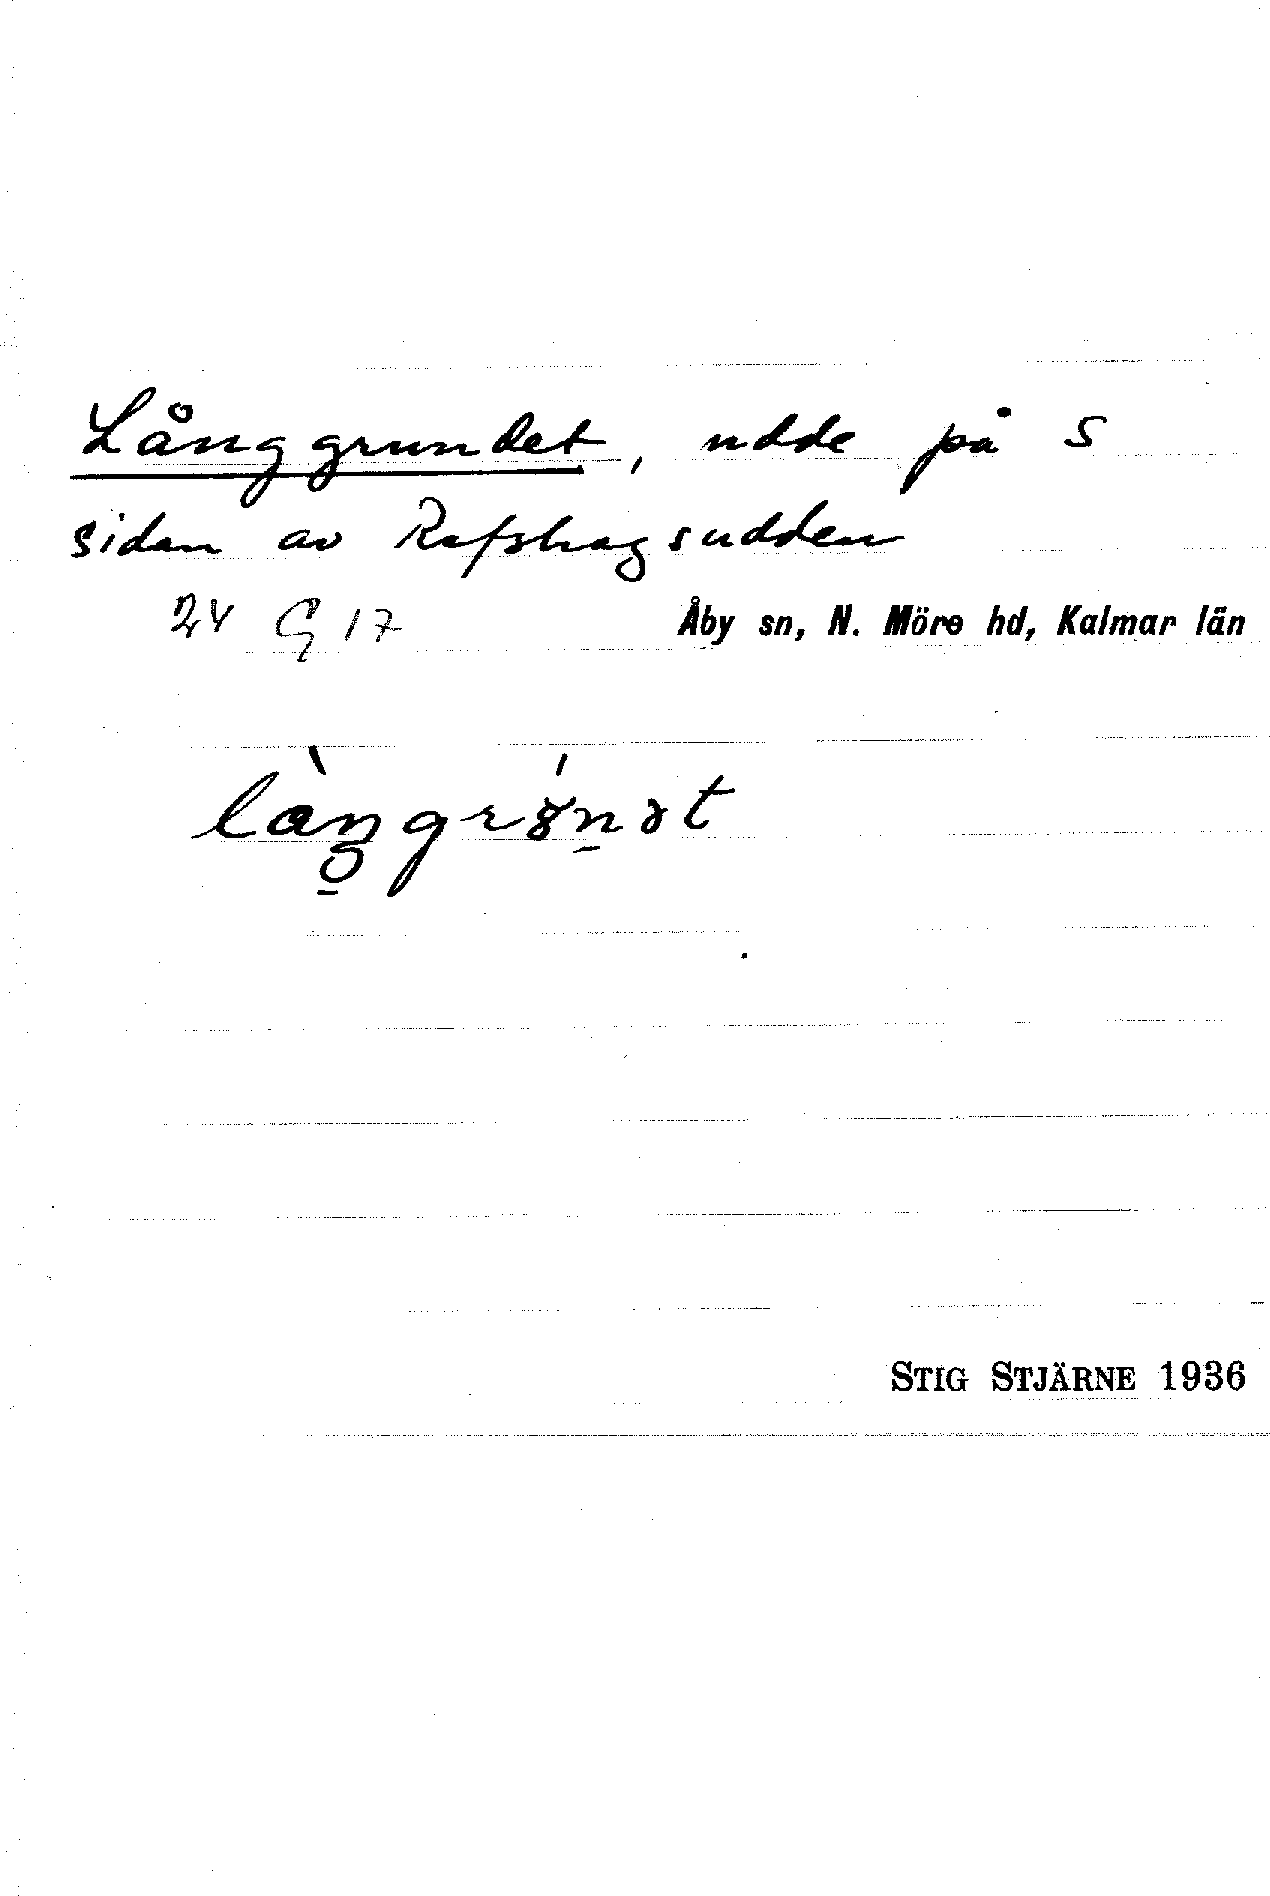 Långgrundet, udde på S
sidan av Rafshagsudden
24 G 17 Åby sn, N. Möre hd, Kalmar län
STIG STJÄRNE 1936